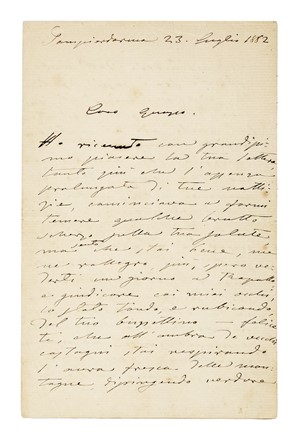 Sampierdarena 23. Luglio 1882
Caro
Ho ricevuto con grandissi
mo piacere la tua lettera
tanto più che l'assenza
prolungata di tue noti
zie, cominciava a farmi
temere qualche brutto
scherzo sulla tua salute
ma sento che stai bene, me
ne rallegro più, spero ve
derti un giorno a Rapallo
e giudicare coi miei occhi,
lo stato tondo, e rubicondo
del tuo
te, che all'ombra di vecchi
castagni stai respirando
l'aura fresca delle mon
tagne dipingendo verdura